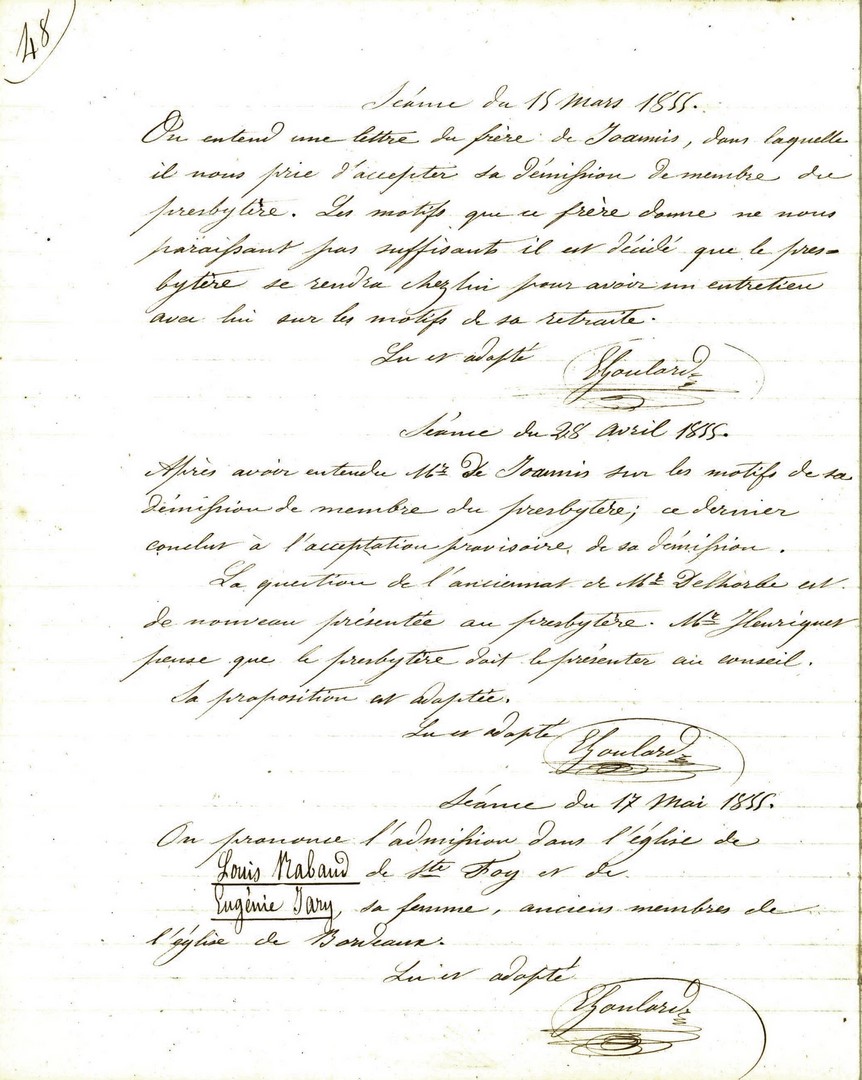 48
Séance du 15 Mars 1855.
On entend une lettre du frère de Joannis, dans laquelle
il nous prie d'accepter sa démission de membre du
presbytère. Les motifs que ce frère donne ne nous
paraissant pas suffisants il est décidé que le pres=
bytère se rendra chez lui pour avoir un entretien
avec lui sur les motifs de sa retraite.
Lu et adopté
EGoulard
Séance du 28 Avril 1855.
Après avoir entendu Mr. de Joannis sur les motifs de sa
démission de membre du presbytère; ce dernier
conclut à l'acceptation provisoire de sa démission.
La question de l'anciennat de Mr. Delhorbe est
de nouveau présentée au presbytère. Mr. Henriquet
pense que le presbytère doit le présenter au conseil.
Sa proposition est adoptée.
Lu et adopté
EGoulard
Séance du 17 Mai 1855.
On prononce l'admission dans l'église de
Louis Rabaud de Ste Foy et de
Eugénie Jary, sa femme, anciens membres de
l'église de Bordeaux.
Lu et adopté
EGoulard